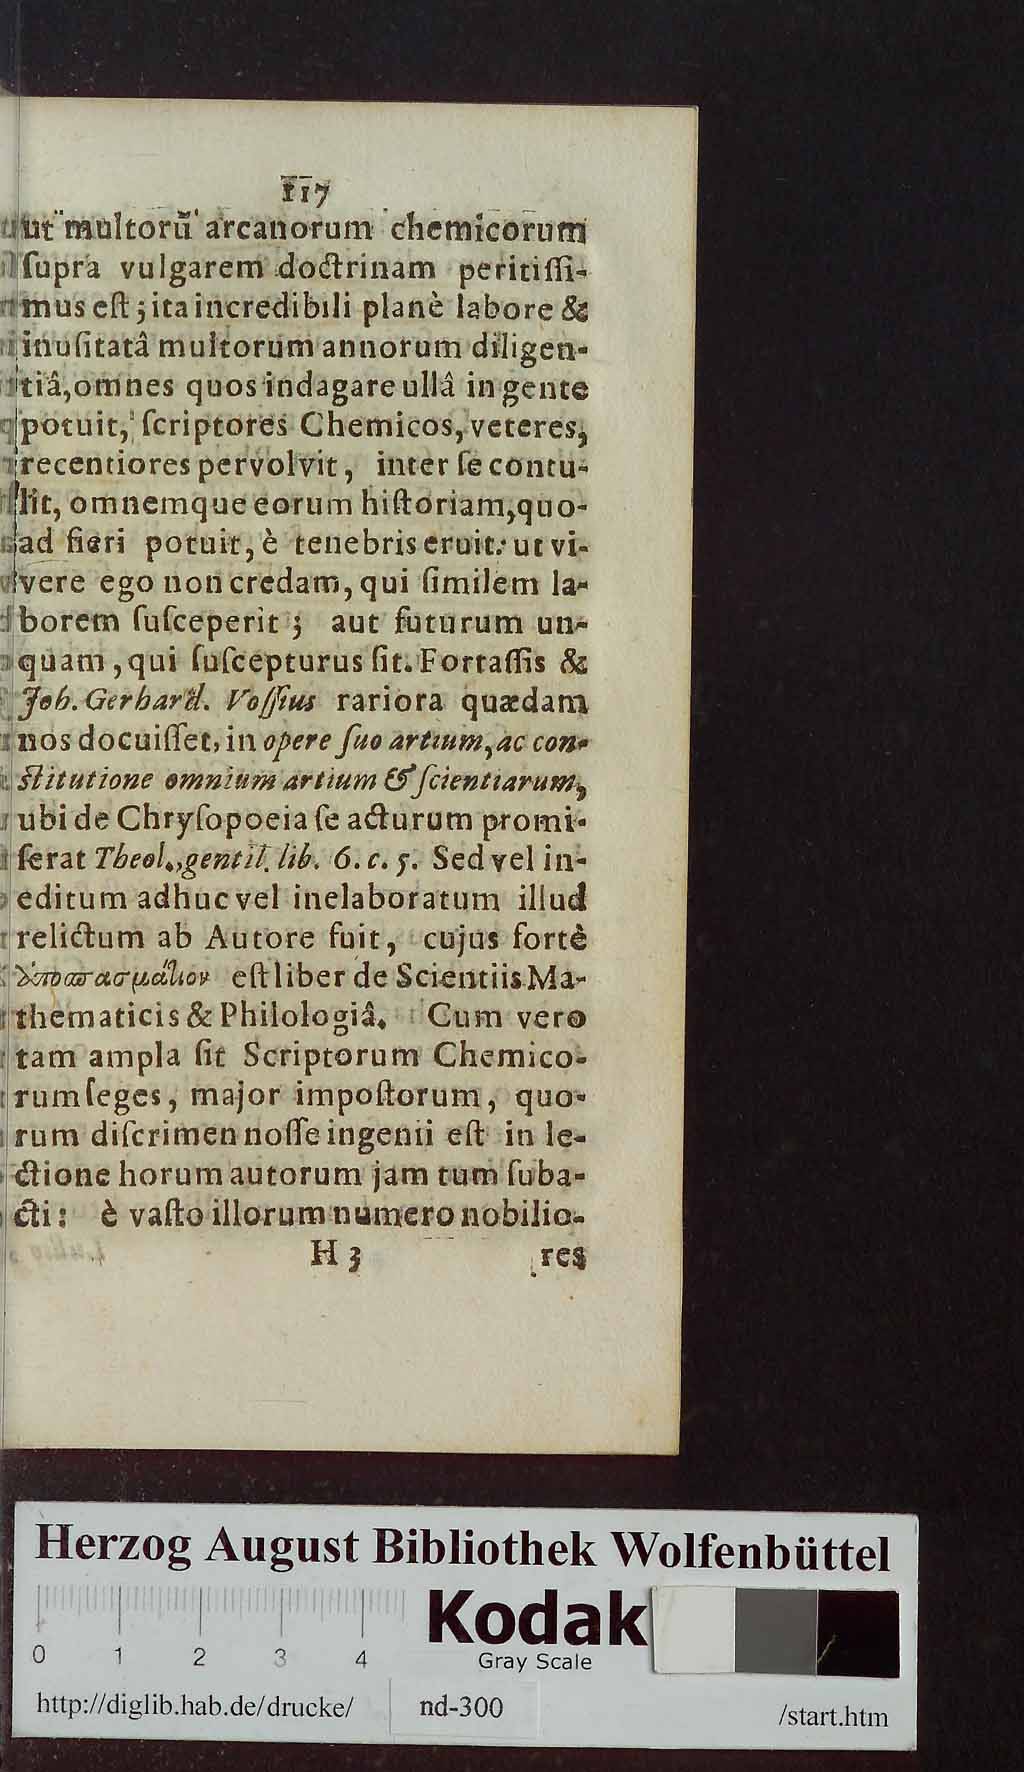 117
ut multorũ arcanorum chemicorum
ſupra vulgarem doctrinam peritiſſi-
mus eſt; ita incredibili planè labore &
inuſitatâ multorum annorum diligen-
tiâ, omnes quos indagare ullâ in gente
potuit, ſcriptores Chemicos, veteres,
recentiores pervolvit, inter ſe contu-
lit, omnemque eorum hiſtoriam, quo-
ad fieri potuit, è tenebris eruit: ut vi-
vere ego non credam, qui ſimilem la-
borem ſuſceperit; aut futurum un-
quam, qui ſuſcepturus ſit. Fortaſſis &
Joh. Gerhard. Voſſius rariora quædam
nos docuiſſet, in opere ſuo artium, ac con-
ſtitutione omnium artium & ſcientiarum,
ubi de Chryſopoeia ſe acturum promi-
ſerat Theol. gentil. lib. 6. c. 5. Sed vel in-
editum adhuc vel inelaboratum illud
relictum ab Autore fuit, cujus fortè
ὑποσπασμάτιον eſt liber de Scientiis Ma-
thematicis & Philologiâ. Cum vero
tam ampla ſit Scriptorum Chemico-
rum ſeges, major impoſtorum, quo-
rum diſcrimen noſſe ingenii eſt in le-
ctione horum autorum jam tum ſuba-
cti: è vaſto illorum numero nobilio-
H 3 res
Herzog August Bibliothek Wolfenbüttel
0 1 2 3 4
Kodak
Gray Scale
http://diglib.hab.de/drucke/ nd-300 /start.htm